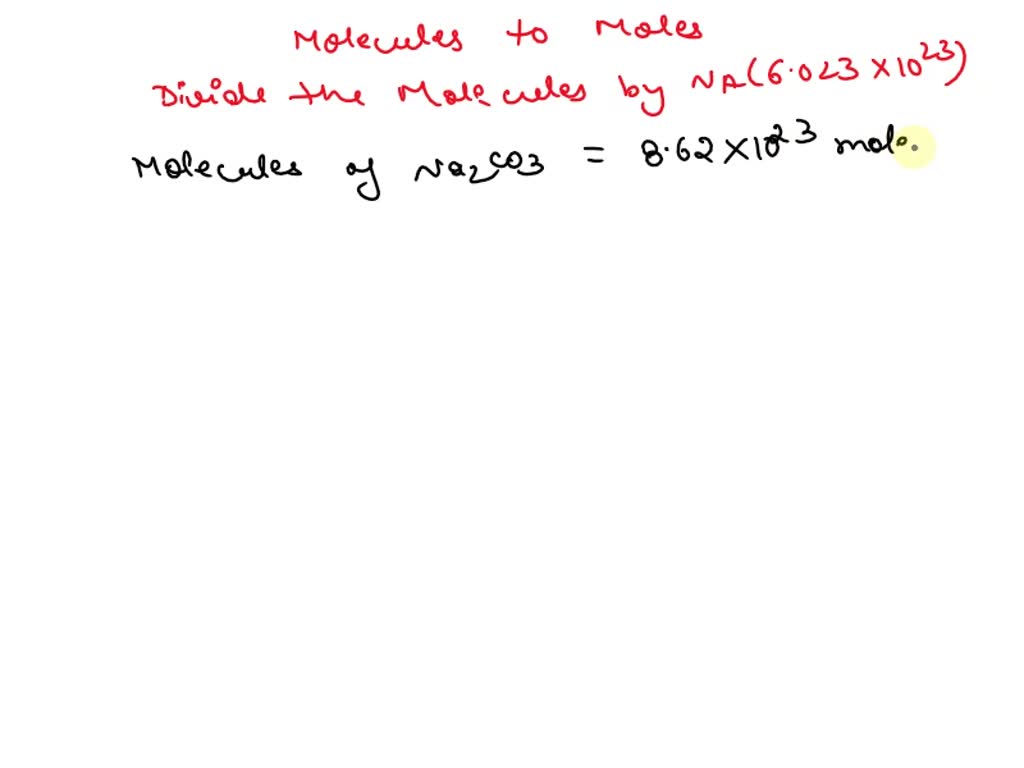 Molecules to Moles
Divide the Molecules by NA(6.023×10²³)
Molecules of Na₂CO₃ = 8.62×10²³ mole.